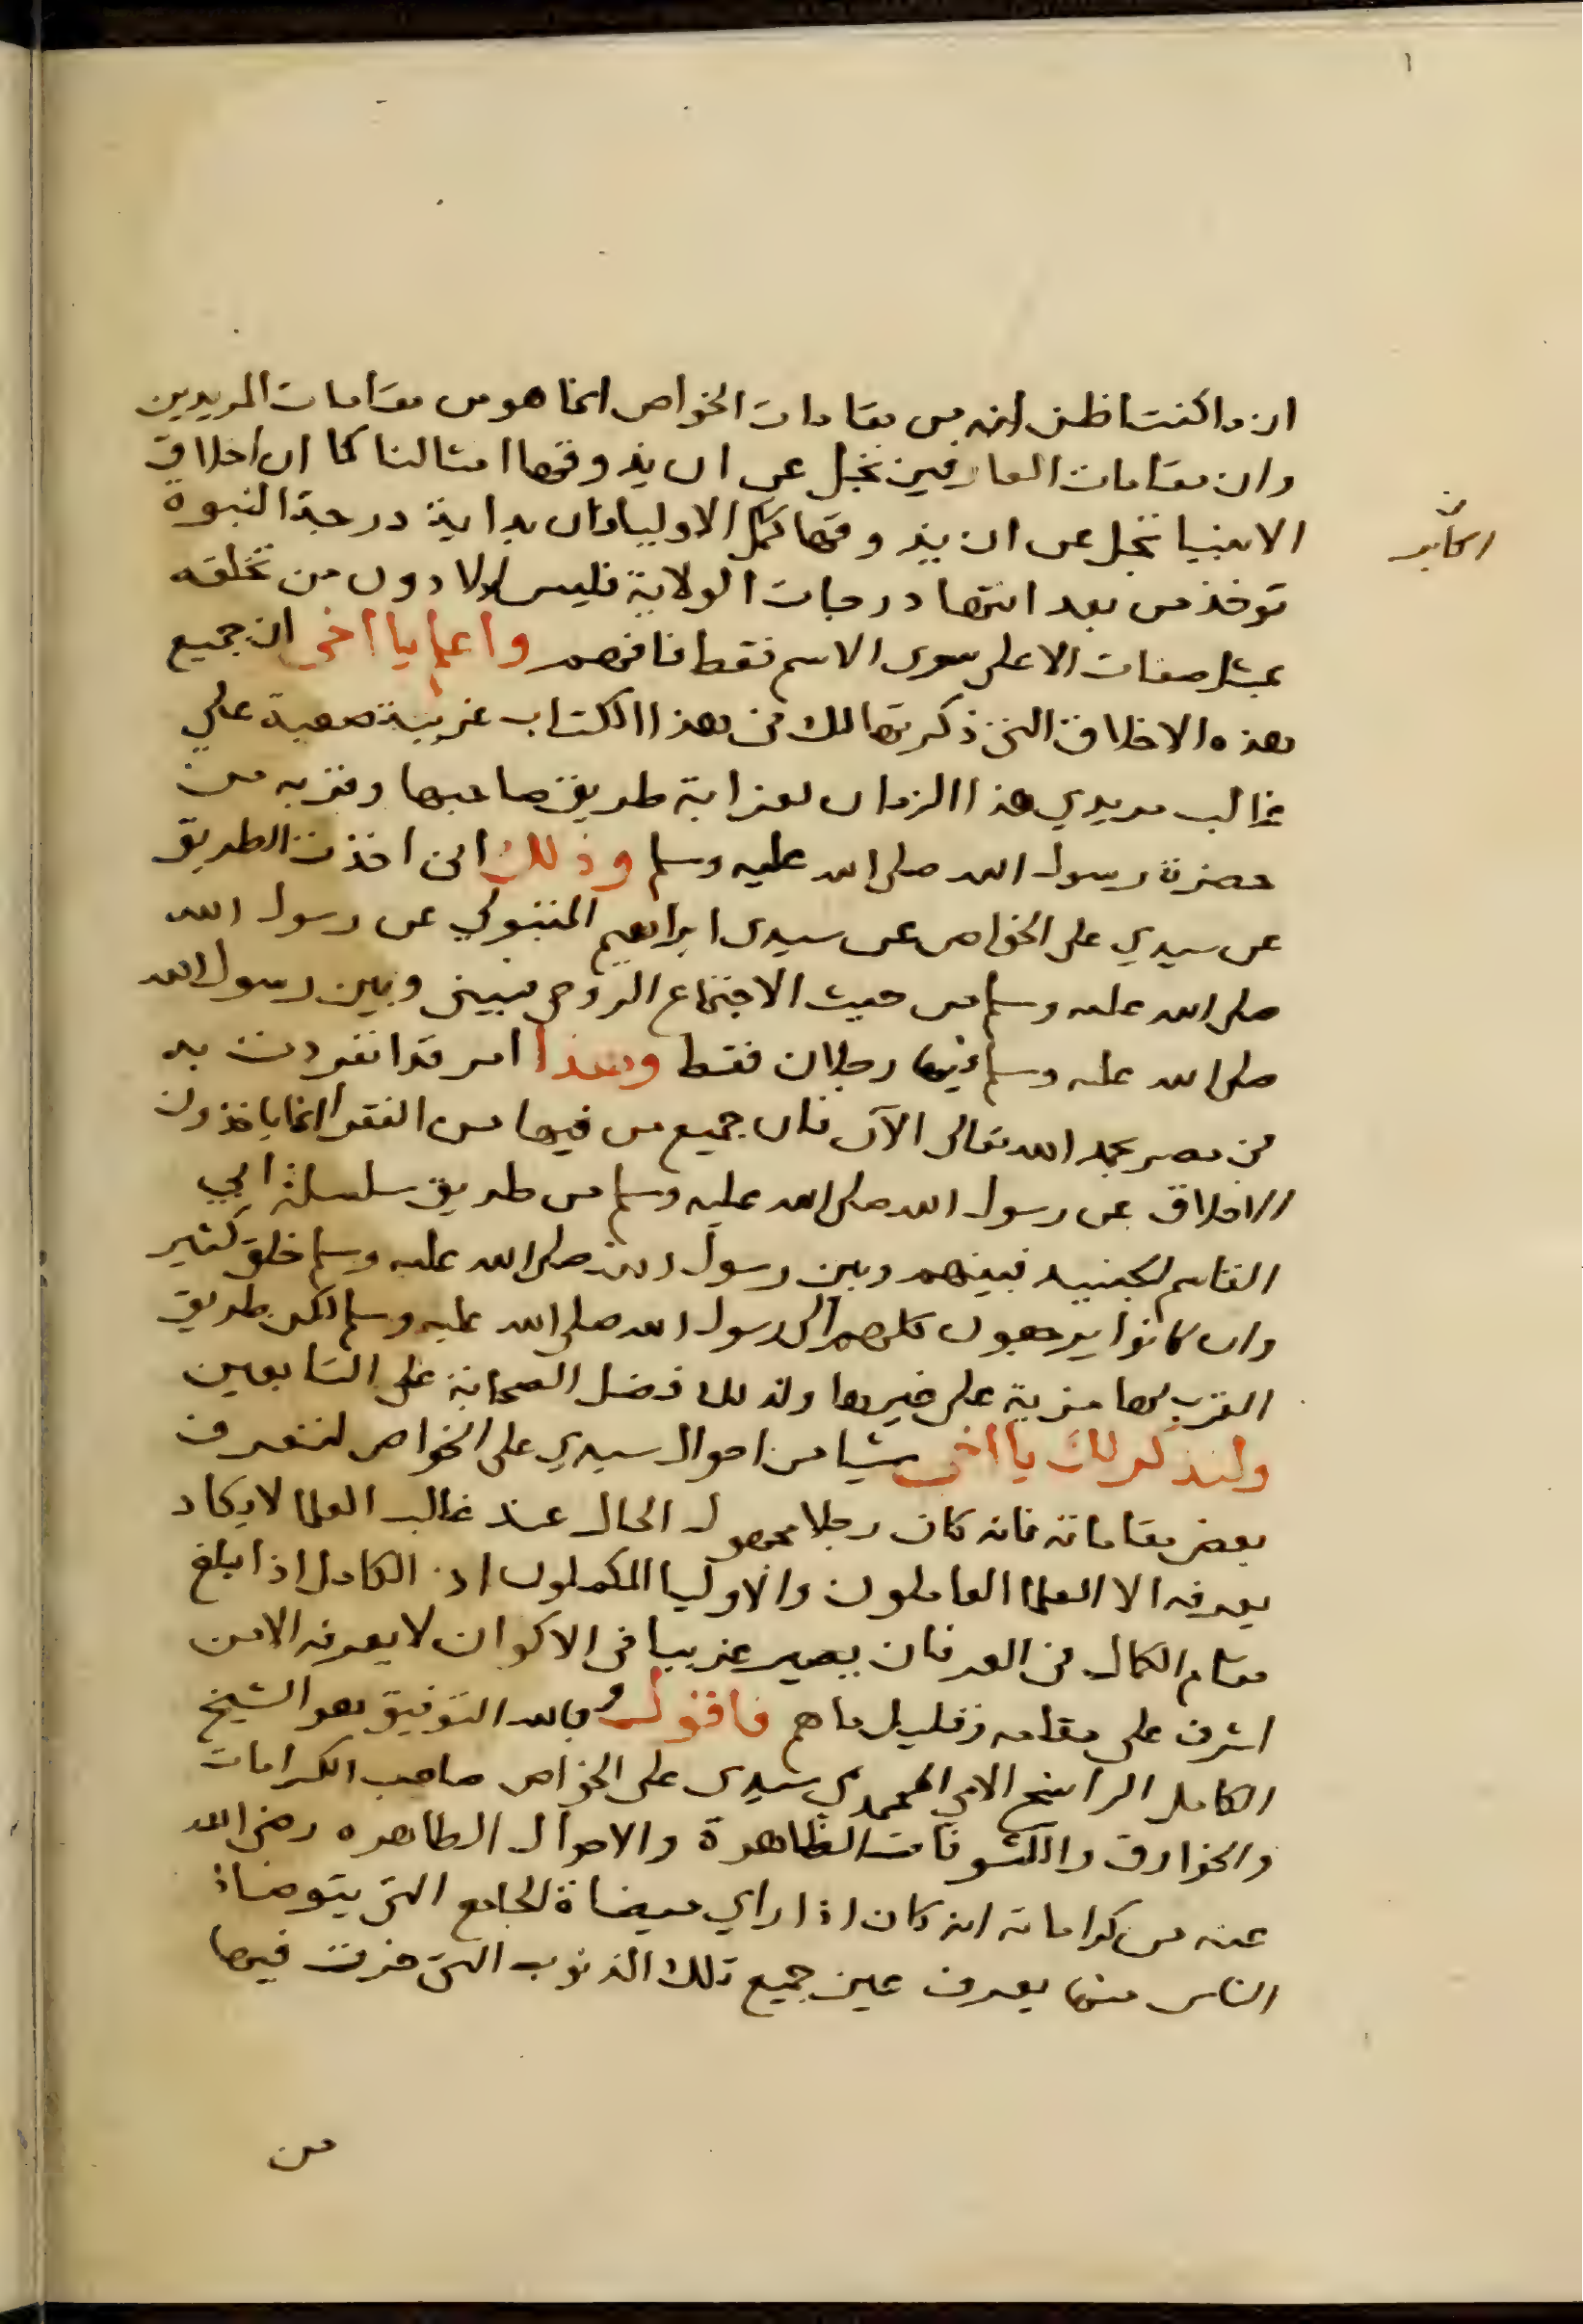 ان ما كنت اظن انه من مقامات الخواص انما هو من مقامات المريدين
وان مقامات العارفين تجل عن ان يذوقها امثالنا كما ان اخلاق
الانبيا تجل عن ان يذوقها كمل الاوليا فان بداية درجة النبوة
توخذ من بعد انتها درجات الولاية فليس للادون من تخلقه
بمثل صفات الاعلى سوى الاسم فقط فافهم واعلم يا اخي ان جميع
هذه الاخلاق التي ذكرتها لك في هذا الكتاب غريبة صعبة علي
غالب مريدي هذا الزمان لغرابة طريق صاحبها وقربه من
حضرة رسول الله صلى الله عليه وسلم وذلك انى اخذت الطريق
عن سيدي على الخواص عن سيدى ابراهيم المتبولي عن رسول الله
صلى الله عليه وسلم من حيث الاجتماع الروحى فبينى وبين رسول الله
صلى الله عليه وسلم فيها رجلان فقط وهذا امر قد انفردت به
فى مصر بحمد الله تعالى الآن فان جميع من فيها من الفقرا انما ياخذون
الاخلاق عن رسول الله صلى الله عليه وسلم من طريق سلسلة ابي
القاسم الجنيد فبينهم وبين رسول الله صلى الله عليه وسلم خلق كثير
وان كانوا يرجعون كلهم الى رسول الله صلى الله عليه وسلم لكن طريق
القرب لها مزية على غيرها ولذلك فضل الصحابة على التابعين
ولنذكر لك يا اخى شيا من احوال سيدي على الخواص لتعرف
بعض مقاماته فانه كان رجلا مجهول الحال عند غالب العلما لا يكاد
يعرفه الا العلما العاملون والاوليا المكملون اذ الكامل اذا بلغ
مقام الكمال فى العرفان يصير غريبا فى الاكوان لا يعرفه الا من
اشرف على مقامه وقليل ما هم فاقول وبالله التوفيق هو الشيخ
الكامل الراسخ الامي المحمدي سيدى على الخواص صاحب الكرامات
والخوارق والكشوفات الظاهرة والاحوال الطاهره رضى الله
عنه من كراماته انه كان اذا راي ميضاة الجامع التى يتوضا
الناس منها يعرف عين جميع تلك الذنوب التى خرت فيها
من